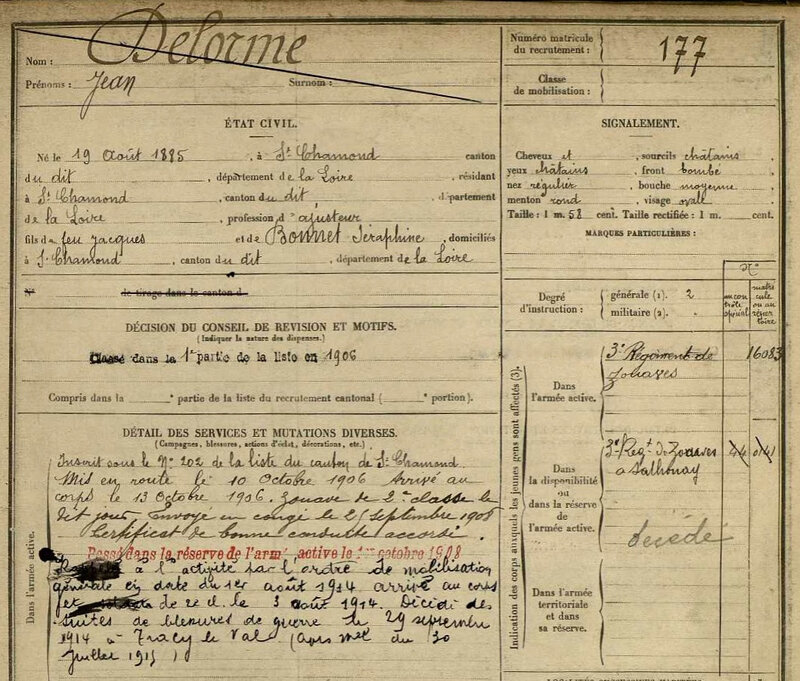 Nom : Delorme
Prénoms : Jean Surnom :
ÉTAT CIVIL.
Né le 19 Août 1885, à St Chamond canton
du dit, département de la Loire, résidant
à St Chamond, canton du dit, département
de la Loire, profession d'ajusteur
fils de feu Jacques et de Bonnet Séraphine, domiciliés
à St Chamond, canton du dit, département de la Loire
N° le tirage dans le canton d
DÉCISION DU CONSEIL DE REVISION ET MOTIFS.
(Indiquer la nature des dispenses.)
Classé dans la 1e partie de la liste en 1906
Compris dans la e partie de la liste du recrutement cantonal ( e portion).
DÉTAIL DES SERVICES ET MUTATIONS DIVERSES.
(Campagnes, blessures, actions d'éclat, décorations, etc.)
Dans l'armée active.
Inscrit sous le N° 202 de la liste du canton de St Chamond
Mis en route le 10 Octobre 1906 Arrivé au
corps le 13 Octobre 1906. Zouave de 2e classe le
dit jour Envoyé en congé le 25 septembre 1908
Certificat de bonne conduite accordé.
Passé dans la réserve de l'armée active le 1er octobre 1908
à l'activité par l'ordre de mobilisation
générale en date du 1er août 1914 arrivé au corps
et de 2e cl. le 3 août 1914. Décédé des
suites de blessures de guerre le 29 septembre
1914 à Tracy le Val (avis mel du 30
Juillet 1915)
Numéro matricule du recrutement : 177
Classe de mobilisation :
SIGNALEMENT.
Cheveux et, sourcils châtains
yeux châtains, front bombé
nez régulier, bouche moyenne
menton rond, visage ovale
Taille : 1 m. 58 cent. Taille rectifiée : 1 m. cent.
MARQUES PARTICULIÈRES :
Degré d'instruction : générale (1). 2
militaire (2).
Nos
au contrôle spécial
matricule ou au répertoire
Indication des corps auxquels les jeunes gens sont affectés (3).
Dans l'armée active.
3e Régiment de Zouaves 16083
Dans la disponibilité ou dans la réserve de l'armée active.
3e Regt de Zouaves
à Sathonay
décédé
Dans l'armée territoriale et dans sa réserve.